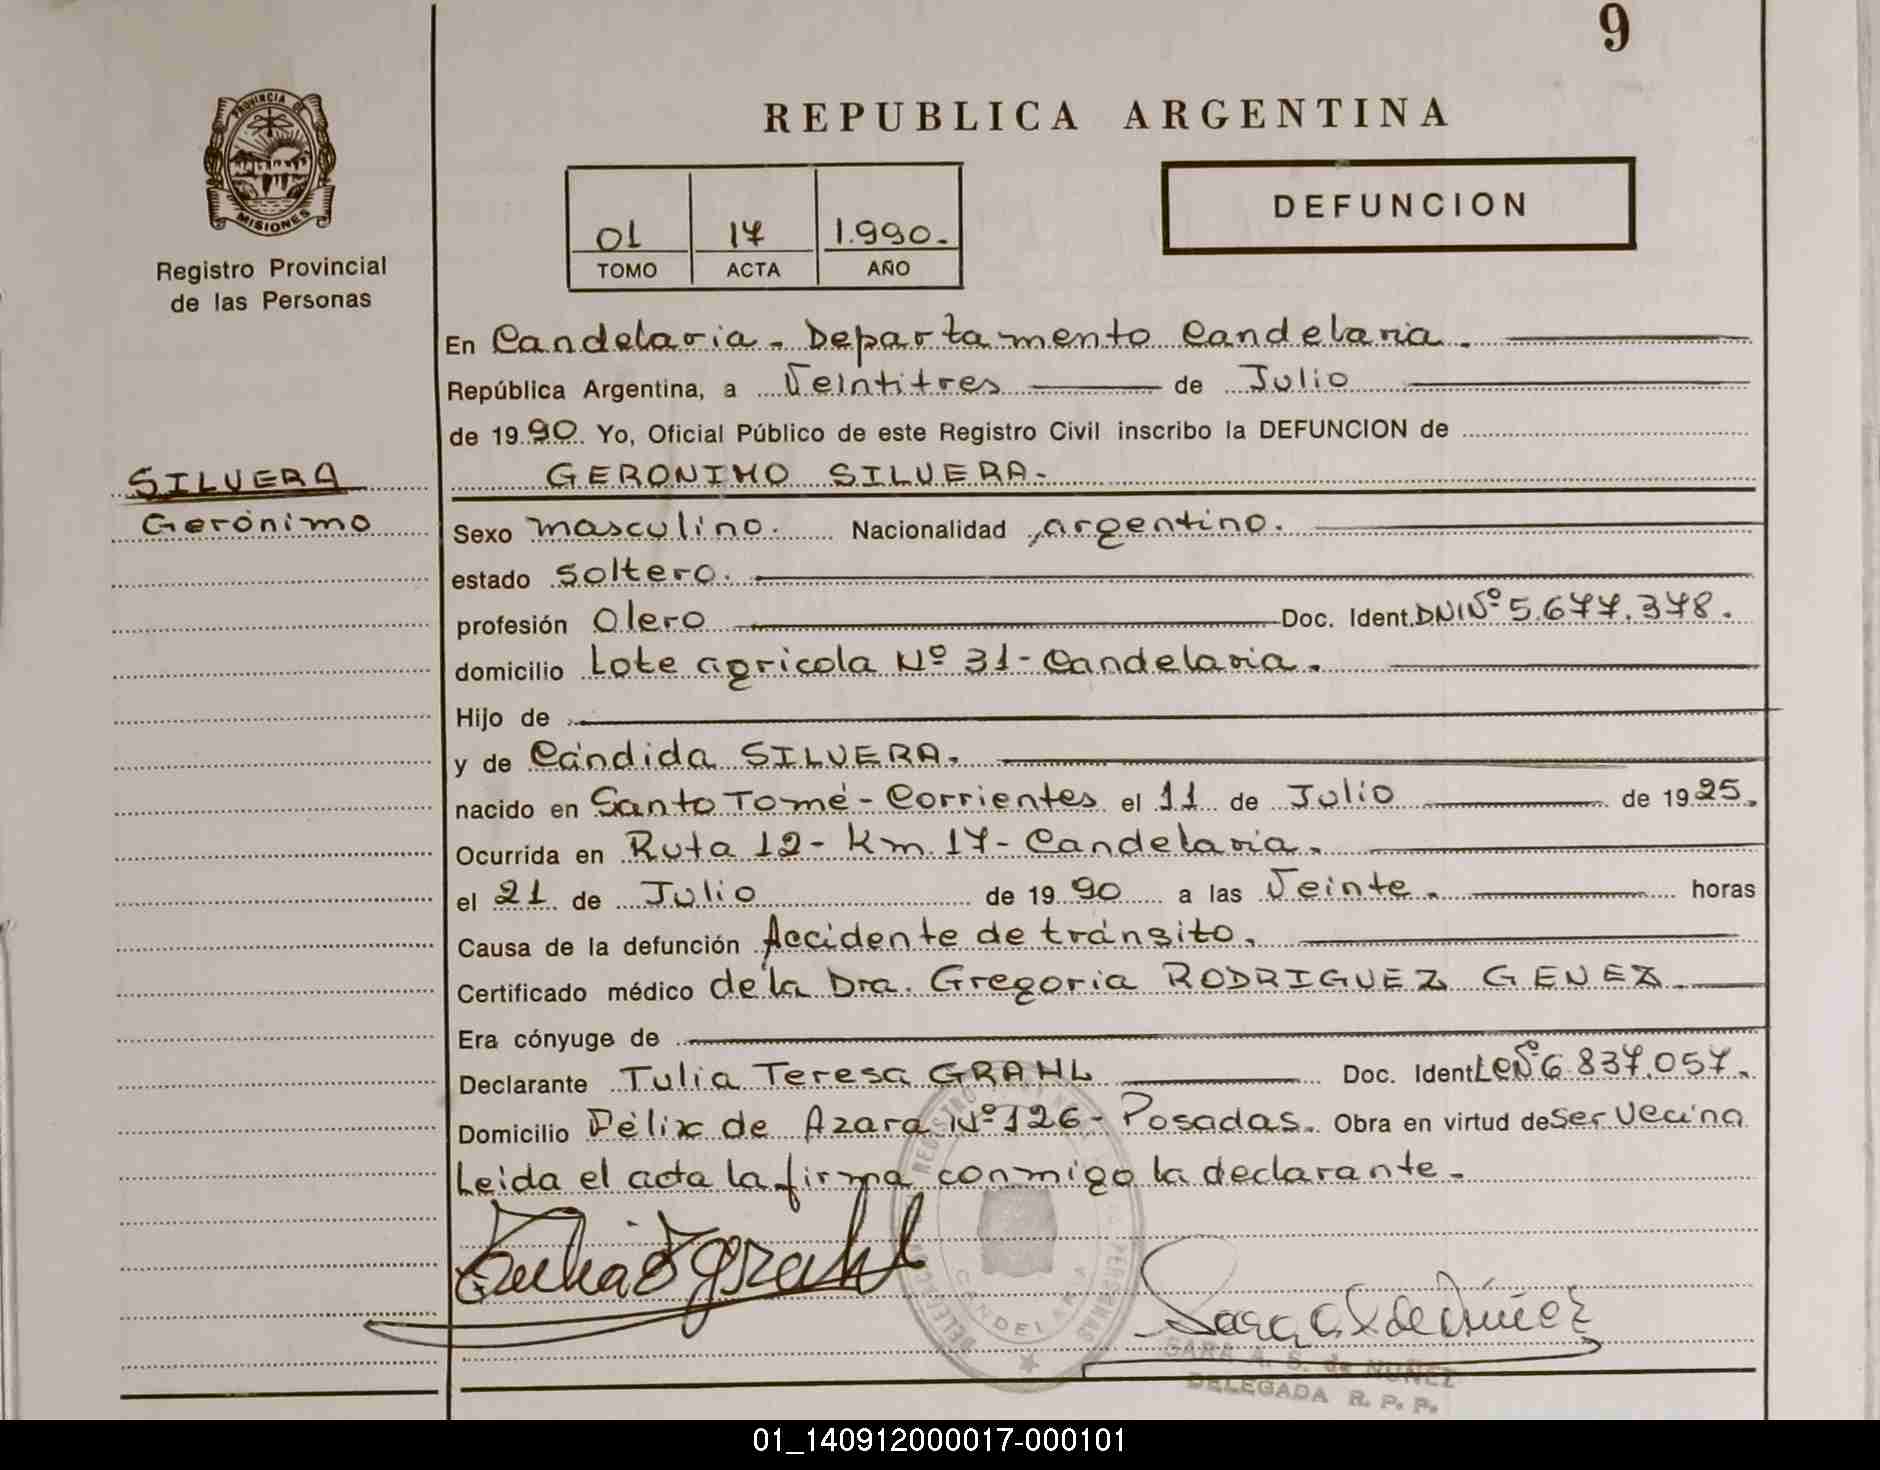 9
PROVINCIA DE
MISIONES
Registro Provincial
de las Personas
REPUBLICA ARGENTINA
01 17 1.990.-
TOMO ACTA AÑO
DEFUNCION
En Candelaria - Departamento Candelaria.
República Argentina, a Veintitres de Julio
de 1990 Yo, Oficial Público de este Registro Civil inscribo la DEFUNCION de
SILVERA
GERONIMO SILVERA.-
Gerónimo
Sexo masculino. Nacionalidad argentino.
estado soltero.
profesión Olero Doc. Ident. DNI Nº 5.677.378.
domicilio Lote agricola Nº 31 - Candelaria.
Hijo de
y de Cándida SILVERA.
nacido en Santo Tomé - Corrientes el 11 de Julio de 1925.
Ocurrida en Ruta 12 - Km. 17 - Candelaria.
el 21 de Julio de 1990 a las Veinte. horas
Causa de la defunción Accidente de tránsito.
Certificado médico de la Dra. Gregoria RODRIGUEZ GENEZ.
Era cónyuge de
Declarante Tulia Teresa GRAHL Doc. Ident LC Nº 6.837.057.
Domicilio Félix de Azara Nº 126 - Posadas. Obra en virtud de ser vecina
Leida el acta la firma conmigo la declarante.-
CANDELARIA
SARA A. S. de NUÑEZ
DELEGADA R. P. P.
01_140912000017-000101